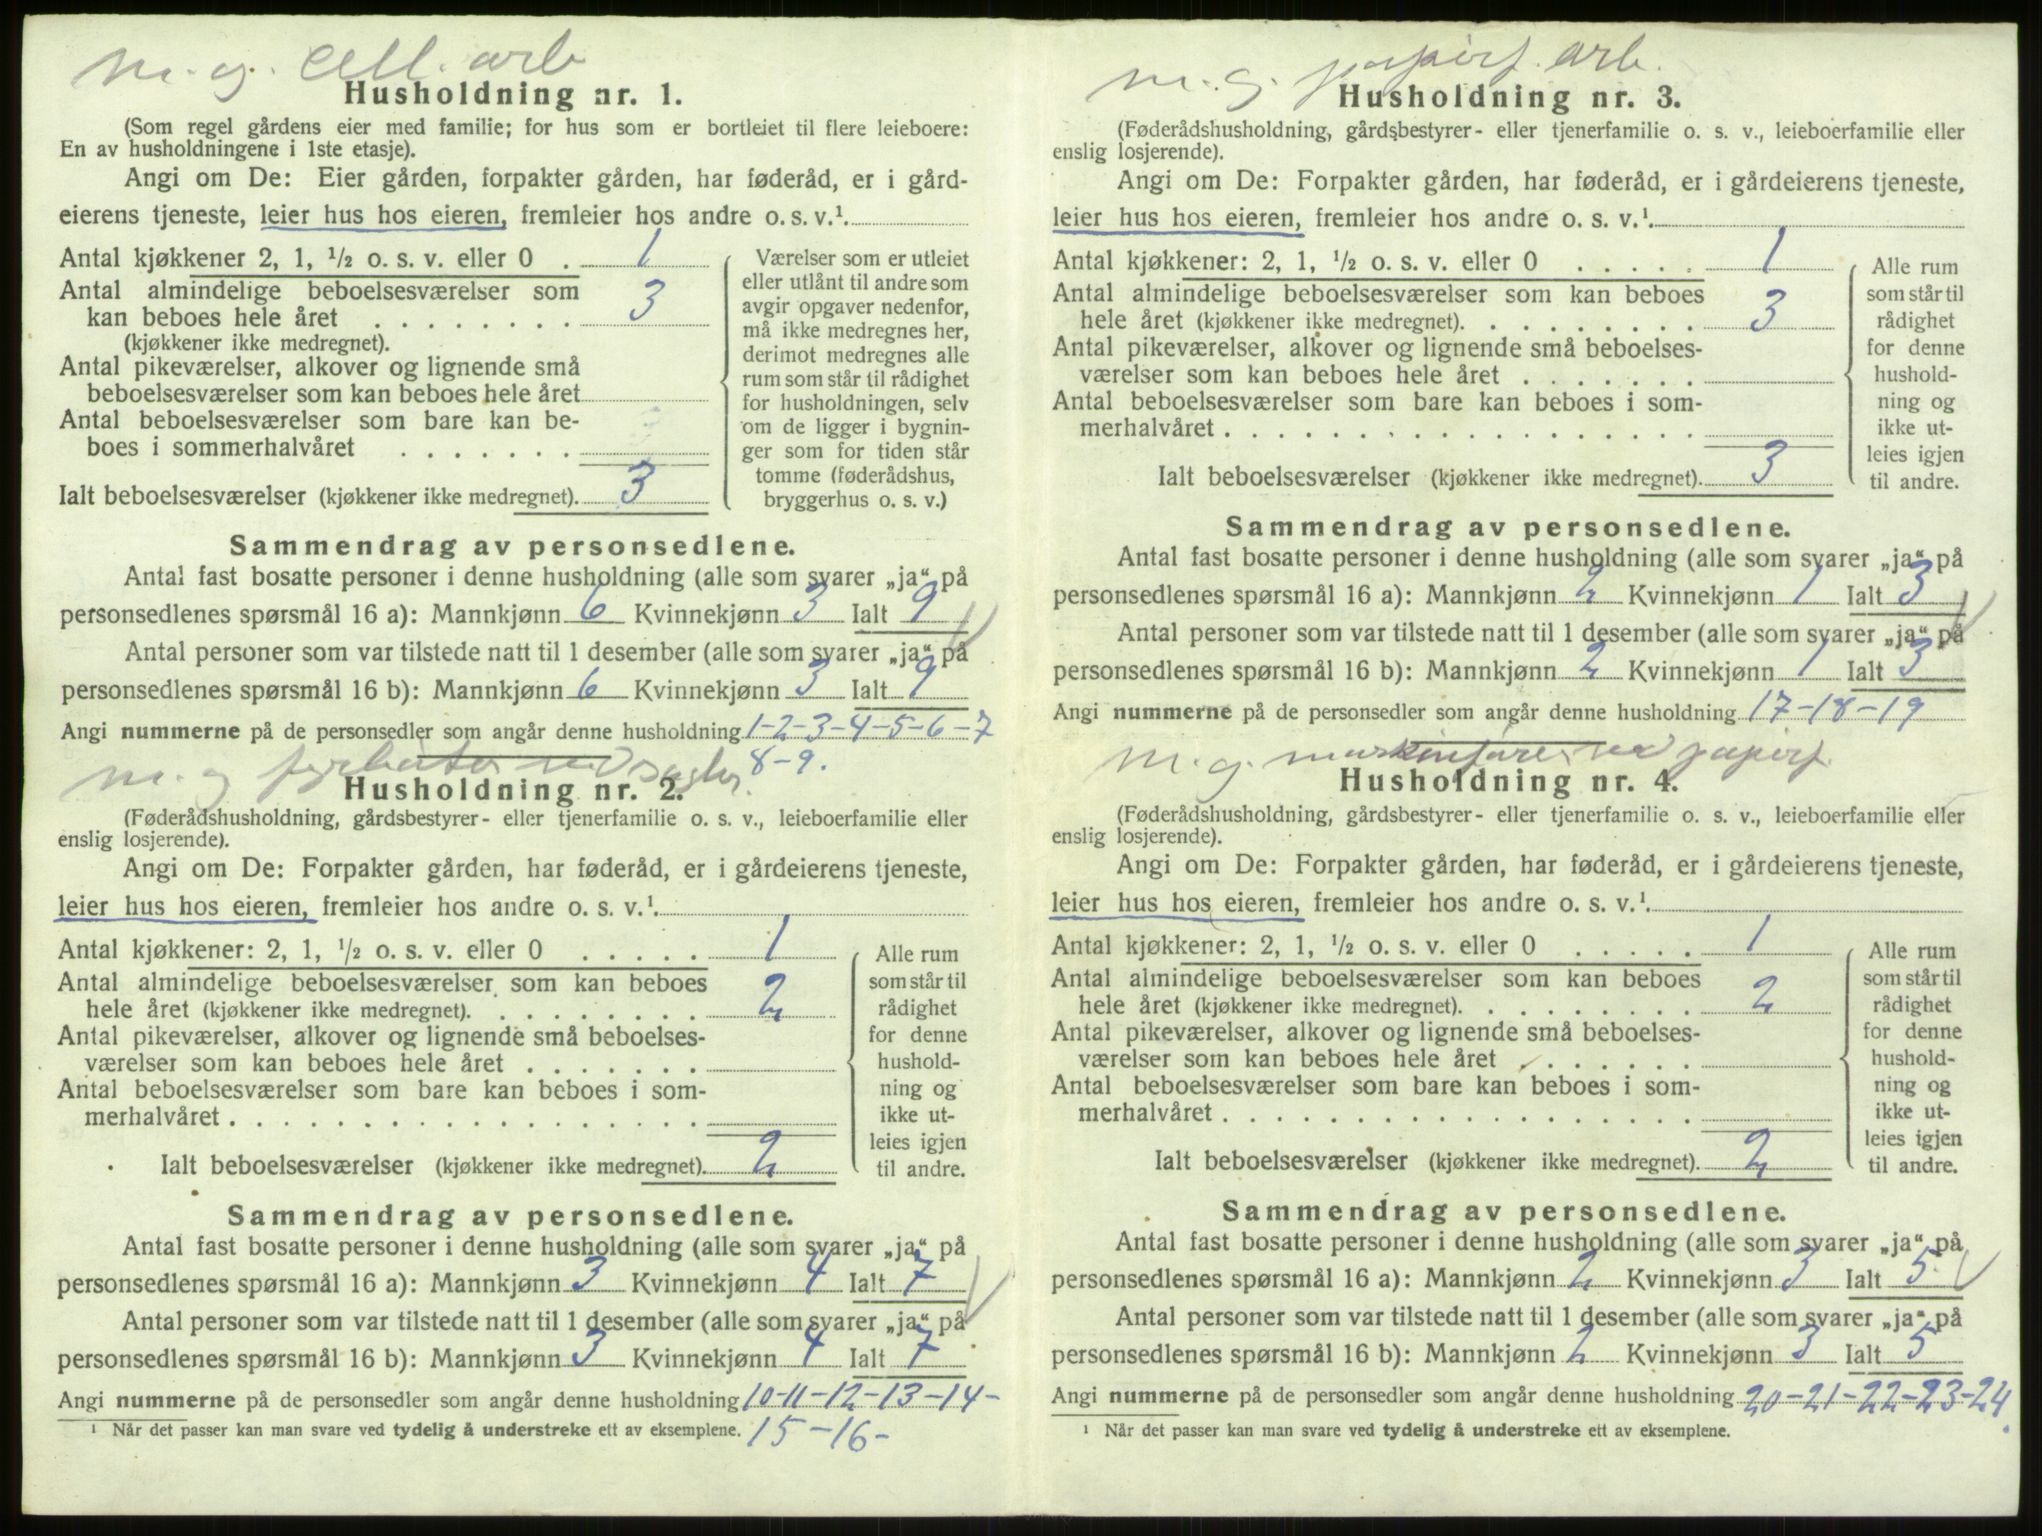 m. g. cell. arb
Husholdning nr. 1.
(Som regel gårdens eier med familie; for hus som er bortleiet til flere leieboere:
En av husholdningene i 1ste etasje).
Angi om De: Eier gården, forpakter gården, har føderåd, er i gård-
eierens tjeneste, leier hus hos eieren, fremleier hos andre o. s. v.¹
Antal kjøkkener 2, 1, ½ o. s. v. eller 0 . 1
Antal almindelige beboelsesværelser som
kan beboes hele året . . . . . . . . 3
(kjøkkener ikke medregnet).
Antal pikeværelser, alkover og lignende små
beboelsesværelser som kan beboes hele året
Antal beboelsesværelser som bare kan be-
boes i sommerhalvåret . . . . . . .
Ialt beboelsesværelser (kjøkkener ikke medregnet). 3
Værelser som er utleiet
eller utlånt til andre som
avgir opgaver nedenfor,
må ikke medregnes her,
derimot medregnes alle
rum som står til rådighet
for husholdningen, selv
om de ligger i bygnin-
ger som for tiden står
tomme (føderådshus,
bryggerhus o. s. v.)
Sammendrag av personsedlene.
Antal fast bosatte personer i denne husholdning (alle som svarer „ja“ på
personsedlenes spørsmål 16 a): Mannkjønn 6 Kvinnekjønn 3 Ialt 9
Antal personer som var tilstede natt til 1 desember (alle som svarer „ja“ på
personsedlenes spørsmål 16 b): Mannkjønn 6 Kvinnekjønn 3 Ialt 9
Angi nummerne på de personsedler som angår denne husholdning 1-2-3-4-5-6-7
8-9.
m. g.
Husholdning nr. 2.
(Føderådshusholdning, gårdsbestyrer- eller tjenerfamilie o. s. v., leieboerfamilie eller
enslig losjerende).
Angi om De: Forpakter gården, har føderåd, er i gårdeierens tjeneste,
leier hus hos eieren, fremleier hos andre o. s. v.¹
Antal kjøkkener: 2, 1, ½ o. s. v. eller 0 . . . . . 1
Antal almindelige beboelsesværelser som kan beboes
hele året (kjøkkener ikke medregnet). . . . . . . . . 2
Antal pikeværelser, alkover og lignende små beboelses-
værelser som kan beboes hele året . . . . . . .
Antal beboelsesværelser som bare kan beboes i som-
merhalvåret . . . . . . . . . . . . . . . . . .
Ialt beboelsesværelser (kjøkkener ikke medregnet). 2
Alle rum
som står til
rådighet
for denne
hushold-
ning og
ikke ut-
leies igjen
til andre.
Sammendrag av personsedlene.
Antal fast bosatte personer i denne husholdning (alle som svarer „ja“ på
personsedlenes spørsmål 16 a): Mannkjønn 3 Kvinnekjønn 4 Ialt 7
Antal personer som var tilstede natt til 1 desember (alle som svarer „ja“ på
personsedlenes spørsmål 16 b): Mannkjønn 3 Kvinnekjønn 4 Ialt 7
Angi nummerne på de personsedler som angår denne husholdning 10-11-12-13-14-
15-16-
¹ Når det passer kan man svare ved tydelig å understreke ett av eksemplene.
m. g. papirf. arb.
Husholdning nr. 3.
(Føderådshusholdning, gårdsbestyrer- eller tjenerfamilie o. s. v., leieboerfamilie eller
enslig losjerende).
Angi om De: Forpakter gården, har føderåd, er i gårdeierens tjeneste,
leier hus hos eieren, fremleier hos andre o. s. v.¹
Antal kjøkkener: 2, 1, ½ o. s. v. eller 0 . . . . . 1
Antal almindelige beboelsesværelser som kan beboes
hele året (kjøkkener ikke medregnet). . . . . . . . . 3
Antal pikeværelser, alkover og lignende små beboelses-
værelser som kan beboes hele året . . . . . . .
Antal beboelsesværelser som bare kan beboes i som-
merhalvåret . . . . . . . . . . . . . . . . . .
Ialt beboelsesværelser (kjøkkener ikke medregnet). 3
Alle rum
som står til
rådighet
for denne
hushold-
ning og
ikke ut-
leies igjen
til andre.
Sammendrag av personsedlene.
Antal fast bosatte personer i denne husholdning (alle som svarer „ja“ på
personsedlenes spørsmål 16 a): Mannkjønn 2 Kvinnekjønn 1 Ialt 3
Antal personer som var tilstede natt til 1 desember (alle som svarer „ja“ på
personsedlenes spørsmål 16 b): Mannkjønn 2 Kvinnekjønn 1 Ialt 3
Angi nummerne på de personsedler som angår denne husholdning 17-18-19
m. g. maskinfører ved papirf.
Husholdning nr. 4.
(Føderådshusholdning, gårdsbestyrer- eller tjenerfamilie o. s. v., leieboerfamilie eller
enslig losjerende).
Angi om De: Forpakter gården, har føderåd, er i gårdeierens tjeneste,
leier hus hos eieren, fremleier hos andre o. s. v.¹
Antal kjøkkener: 2, 1, ½ o. s. v. eller 0 . . . . . 1
Antal almindelige beboelsesværelser som kan beboes
hele året (kjøkkener ikke medregnet). . . . . . . . . 2
Antal pikeværelser, alkover og lignende små beboelses-
værelser som kan beboes hele året . . . . . . .
Antal beboelsesværelser som bare kan beboes i som-
merhalvåret . . . . . . . . . . . . . . . . . .
Ialt beboelsesværelser (kjøkkener ikke medregnet). 2
Alle rum
som står til
rådighet
for denne
hushold-
ning og
ikke ut-
leies igjen
til andre.
Sammendrag av personsedlene.
Antal fast bosatte personer i denne husholdning (alle som svarer „ja“ på
personsedlenes spørsmål 16 a): Mannkjønn 2 Kvinnekjønn 3 Ialt 5
Antal personer som var tilstede natt til 1 desember (alle som svarer „ja“ på
personsedlenes spørsmål 16 b): Mannkjønn 2 Kvinnekjønn 3 Ialt 5
Angi nummerne på de personsedler som angår denne husholdning 20-21-22-23-24.
¹ Når det passer kan man svare ved tydelig å understreke ett av eksemplene.